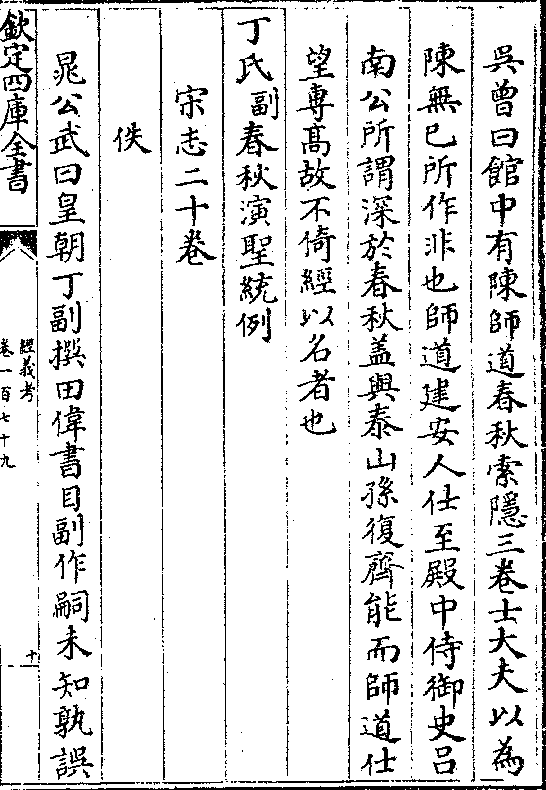 吳曾曰館中有陳師道春秋索隱三卷士大夫以為
陳無已所作非也師道建安人仕至殿中侍御史吕
南公所謂深於春秋盖與泰山孫復齊能而師道仕
望專髙故不倚經以名者也
丁氏副春秋演聖統例
宋志二十卷
佚
晁公武曰皇朝丁副撰田偉書目副作嗣未知孰誤
欽定四庫全書
經義考
卷一百七十九
十